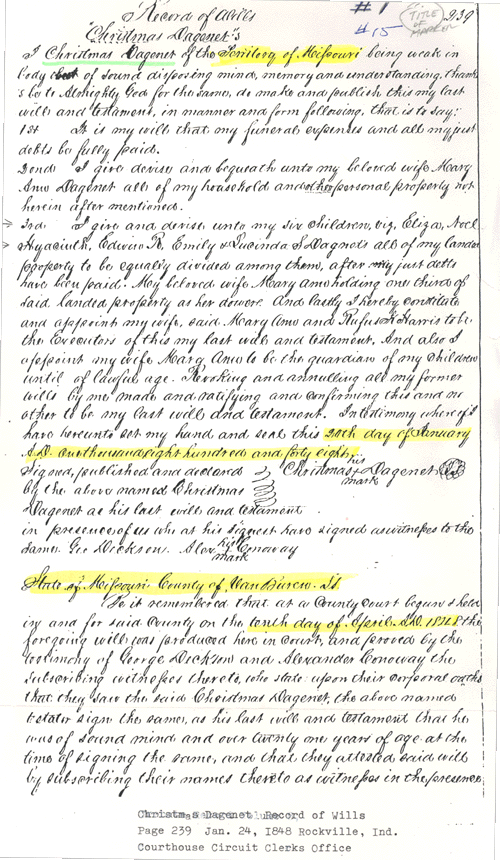 Record of Wills # 1 239
Christmas Dagenet's # 15 TITLE
I Christmas Dagenet of the Territory of Missouri being weak in
body but of sound disposing mind, memory and understanding, thanks
be to Almighty God for the same, do make and publish this my last
will and testament, in manner and form following, that is to say:
1st It is my will that my funeral expenses and all my just
debts be fully paid.
2ond I give devise and bequeath unto my beloved wife Mary
Ann Dagenet all of my household and other personal property not
herein after mentioned.
3rd: I give and devise unto my six children, viz, Eliza, Noel
Hyacinth, Edwin R, Emily & Lucinda S Dagnets all of my landed
property to be equally divided among them, after my just debts
have been paid. My beloved wife Mary Ann holding one third of
said landed property as her dower. And lastly I hereby constitute
and appoint my wife, said Mary Ann and Rufus K Harris to be
the Executors of this my last will and testament, And also I
appoint my wife Mary Ann to be the guardian of my children
until of lawful age. Revoking and annulling all my former
wills by me made and ratifying and confirming this and no
other to be my last will and testament. In testimony whereof I
have hereunto set my hand and seal this 20th day of January
A.D. one thousand eight hundred and forty eight,
Signed, published and declared Christmas his + mark Dagenet
by the above named Christmas
Dagenet as his last will and testament
in presence of us who at his request have signed as witness to the
same. Geo Dickson. Alex his + mark Conoway
State of Missouri County of Van Buren. SS.
Be it remembered that at a County Court begun & held
in and for said County on the tenth day of April A.D. 1848 the
foregoing will was produced here in Court, and proved by the
testimony of George Dickson and Alexander Conoway the
subscribing witnesses thereto, who state upon their corporal oaths
that they saw the said Christmas Dagenet, the above named
testator sign the same, as his last will and testament that he
was of sound mind and over twenty one years of age at the
time of signing the same, and that they attested said will
by subscribing their names thereto as witnesses in the presence
Christmas Dagenet Record of Wills
Page 239 Jan. 24, 1848 Rockville, Ind.
Courthouse Circuit Clerks Office